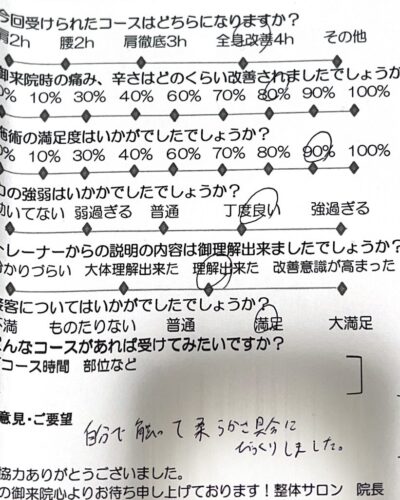 今回受けられたコースはどちらになりますか？
肩2h 腰2h 肩徹底3h 全身改善4h その他
御来院時の痛み、辛さはどのくらい改善されましたでしょうか
0% 10% 30% 40% 60% 70% 80% 90% 100%
施術の満足度はいかがでしたでしょうか？
0% 10% 30% 40% 60% 70% 80% 90% 100%
力の強弱はいかかでしたでしょうか？
効いてない 弱過ぎる 普通 丁度良い 強過ぎる
トレーナーからの説明の内容は御理解出来ましたでしょうか？
分かりづらい 大体理解出来た 理解出来た 改善意識が高まった
接客についてはいかがでしたでしょうか？
不満 ものたりない 普通 満足 大満足
どんなコースがあれば受けてみたいですか？
コース時間 部位など
意見・ご要望
自分で触って柔らかさ具合に
びっくりしました。
協力ありがとうございました。
の御来院心よりお待ち申し上げております！整体サロン 院長